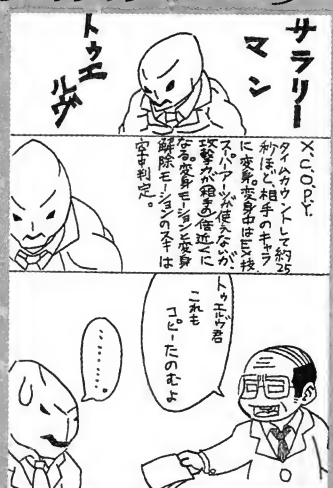 サラリー
マン
トゥエ
ルヴ
X.C.O.P.Y.
タイムカウントして約25
秒ほど、相手のキャラ
に変身。変身中はEX技
スーパーアーツが使えないが、
攻撃力が相手の倍近くに
なる。変身モーションと変身
解除モーションのスキは
空中判定。
トゥエルヴ君
これも
コピーたのむよ
………。